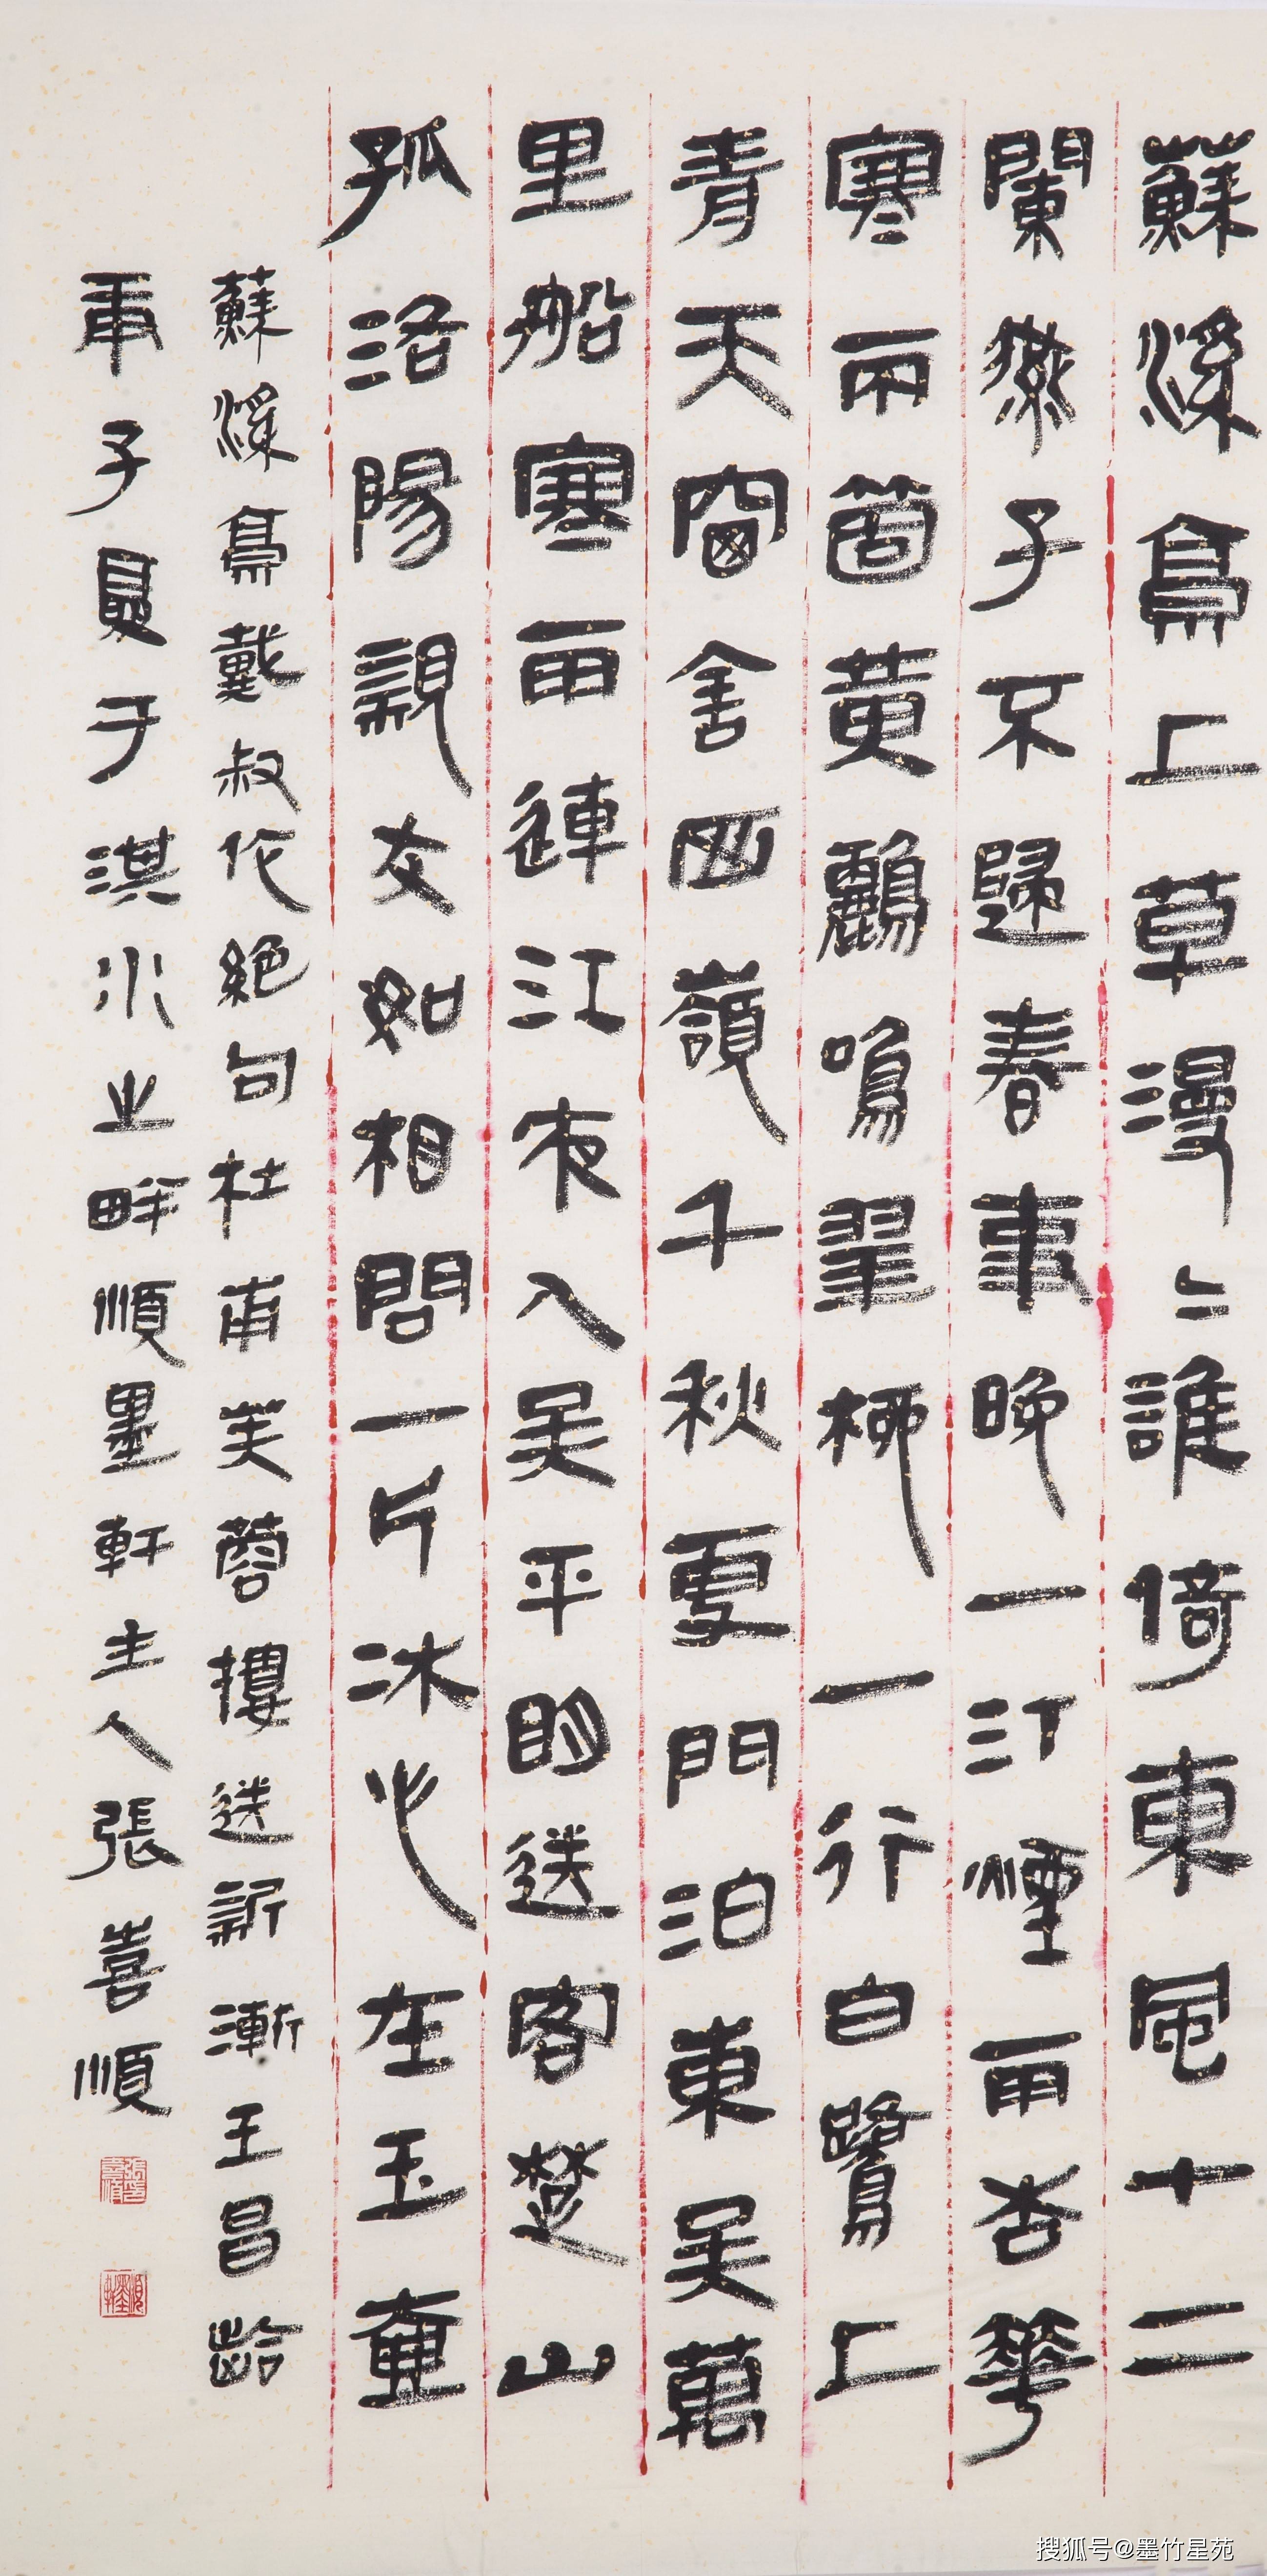 蘇溪亭上草漫〻誰倚東風十二
闌燕子不歸春事晚一汀煙雨杏華
寒兩箇黃鸝鳴翠柳一行白鷺上
青天窗含西嶺千秋雪門泊東吳萬
里船寒雨連江夜入吳平明送客楚山
孤洛陽親友如相問一片冰心在玉壺
蘇溪亭戴叔伦絕句杜甫芙蓉樓送新漸王昌齡
庚子夏于淇水之畔順墨軒主人張喜順
搜狐号@墨竹星苑